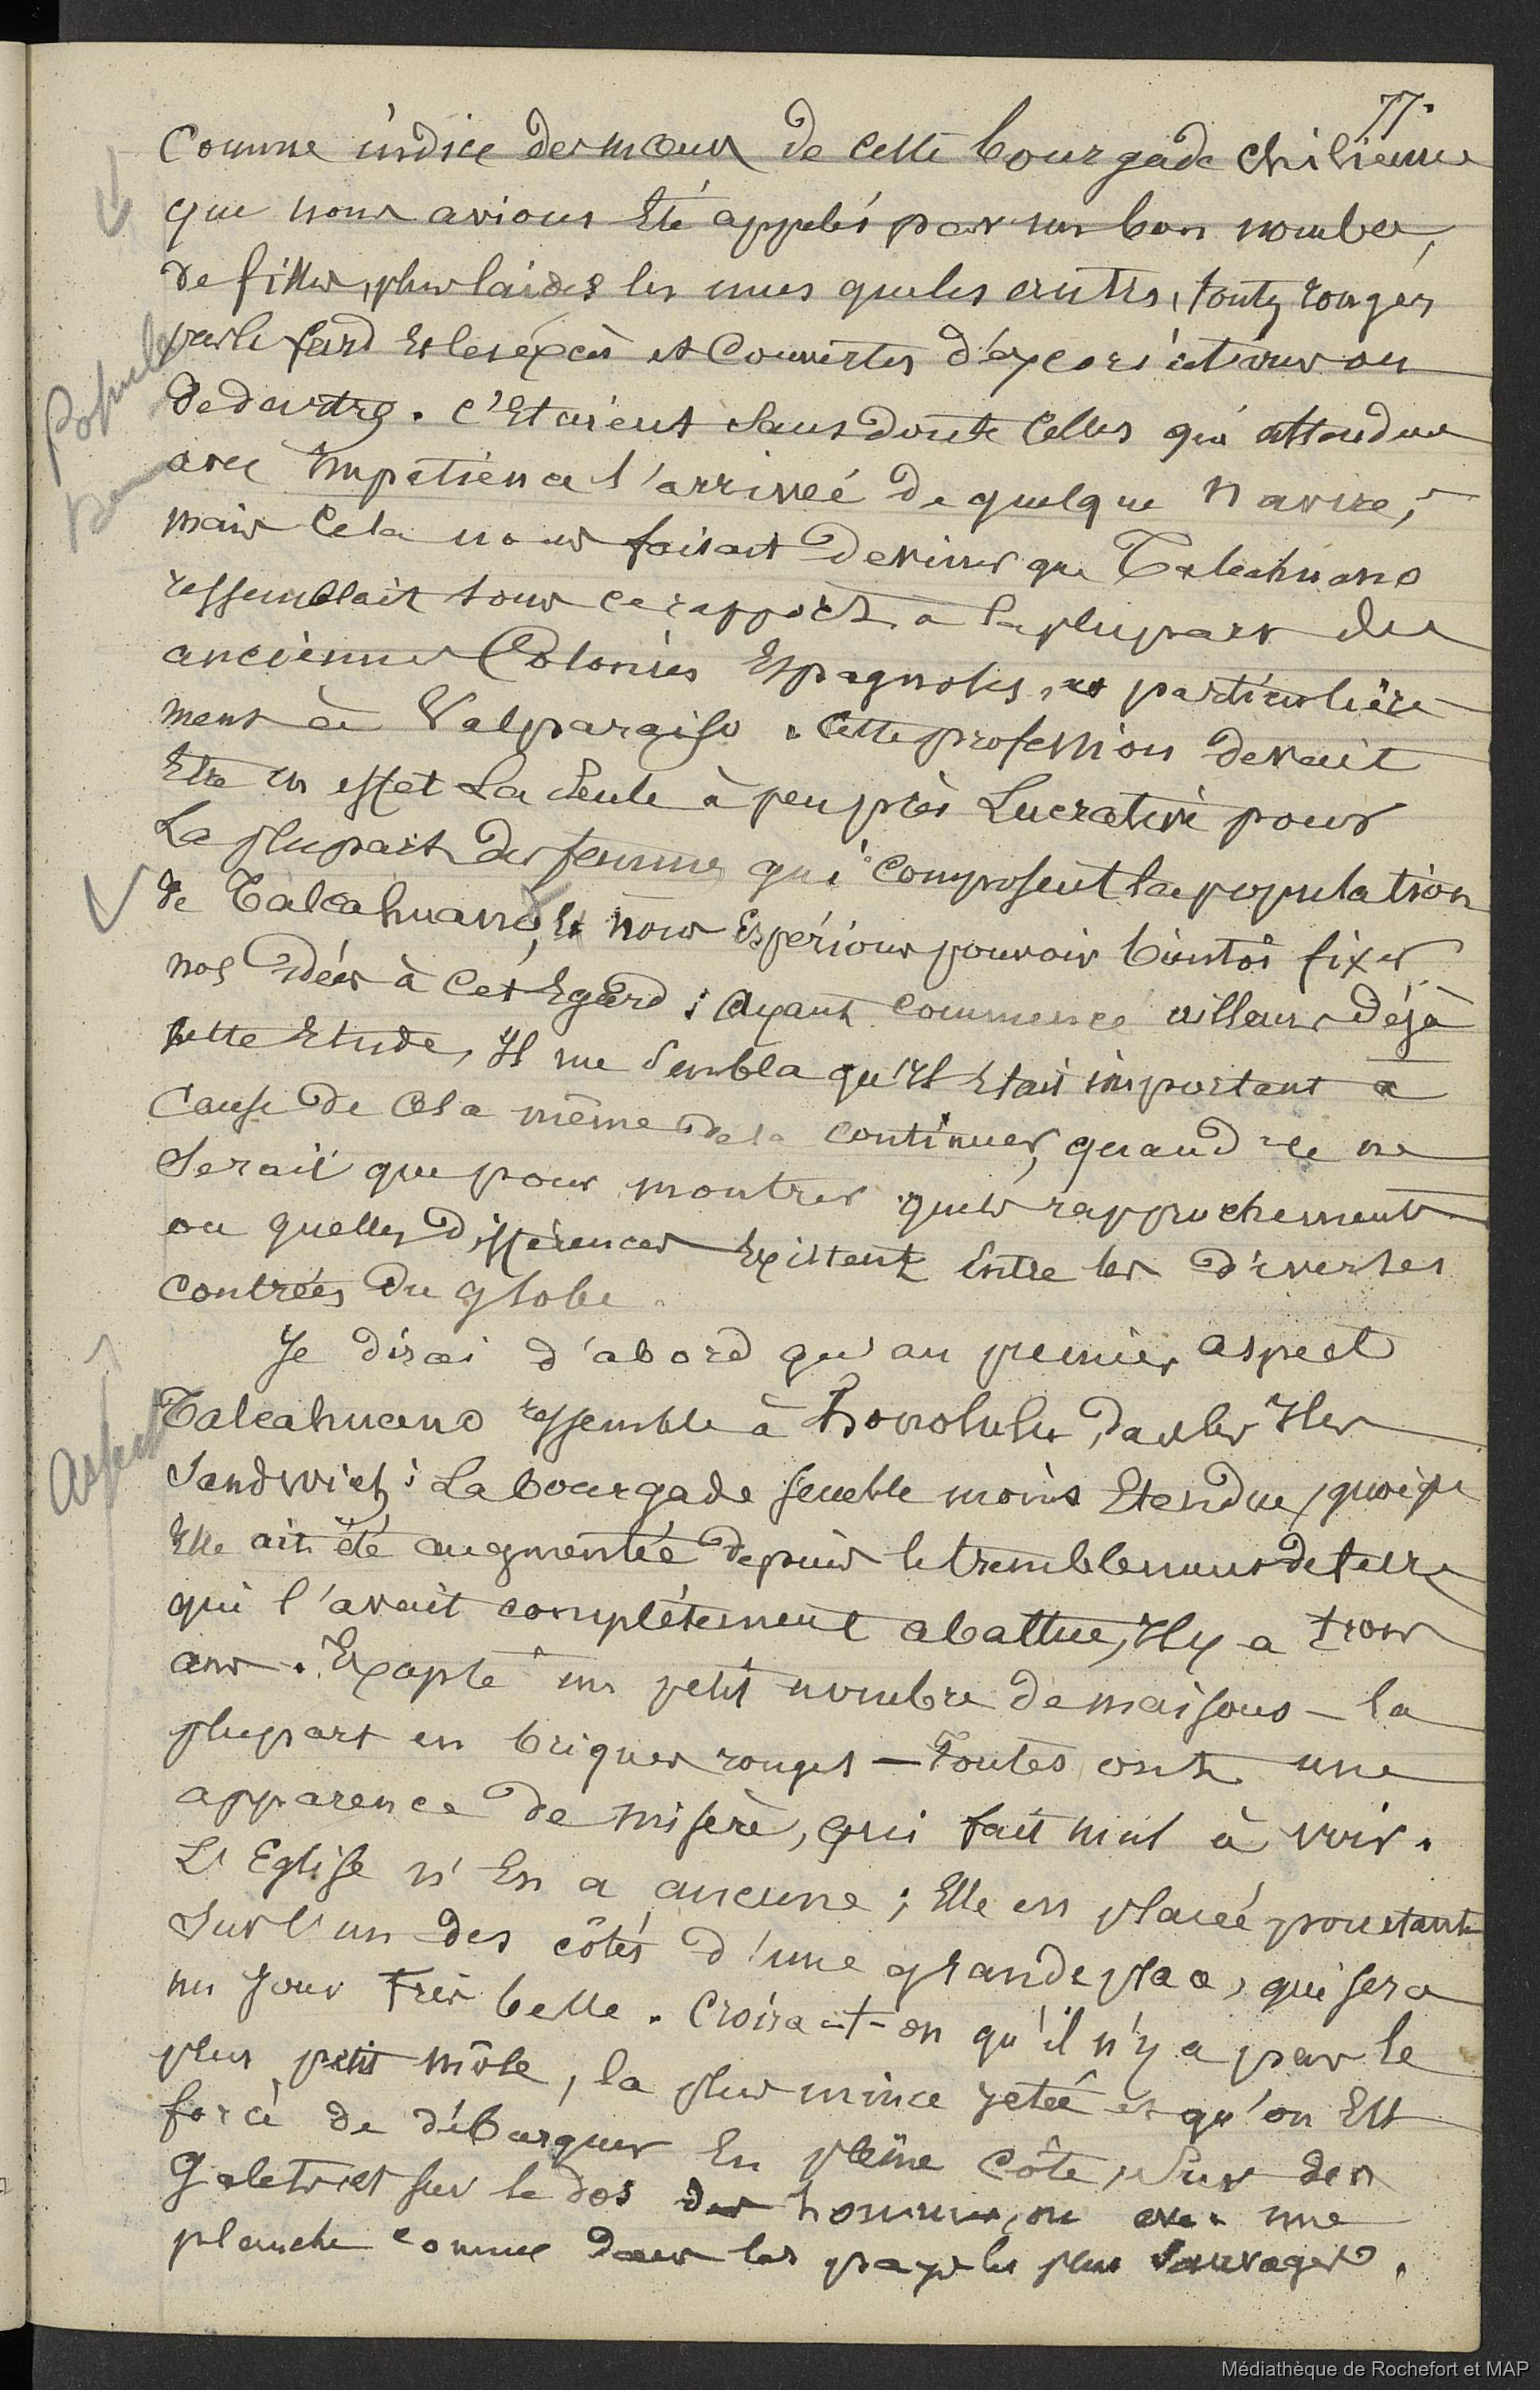 77.
Comme indice des mœurs de cette bourgade chilienne
que nous avions été appelés par un bon nombre,
de filles, plus laides les unes que les autres, toutes rongées
par le fard et les excès et couvertes d'excoriations ou
de dartres. C'étaient sans doute celles qui attendent
avec impatience l'arrivée de quelque navire,
mais cela nous faisait deviner que Talcahuano
ressemblait sous ce rapport à la plupart des
anciennes Colonies Espagnoles, et particulière-
ment à Valparaiso. Cette profession devait
Etre en effet La Seule à peu près Lucrative pour
La plupart des femmes qui composent la population
de Talcahuano, Et nous Espérions pouvoir bientôt fixer
nos idées à cet Egard ; Ayant commencé ailleurs Déjà
cette Etude, Il me Sembla qu'Il Etait important à
Cause de Cela même de la continuer, quand ce ne
Serait que pour montrer quels rapprochements
ou quelles Différences Existent Entre les diverses
contrées du globe.
Je dirai d'abord qu'au premier aspect
Talcahuano ressemble à honolulu, dans les Iles
Sandwich : La bourgade semble moins Etendue, quoiqu'
Elle ait été augmentée depuis le tremblement de terre
qui l'avait complètement abattue, Il y a trois
ans. Excepté un petit nombre de maisons - la
plupart en briques rouges - Toutes ont une
apparence de misère, qui fait mal à voir.
L'Eglise n'En a aucune ; Elle est placée pourtant
Sur l'un des côtés d'une grande place, qui sera
un jour Très belle. Croira-t-on qu'il n'y a pas le
plus petit môle, la plus mince jetée et qu'on Est
forcé de débarquer En pleine Côte, Sur des
Galets et sur le dos des hommes, ou avec une
planche comme dans les pays les plus Sauvages.
Aspect
Médiathèque de Rochefort et MAP